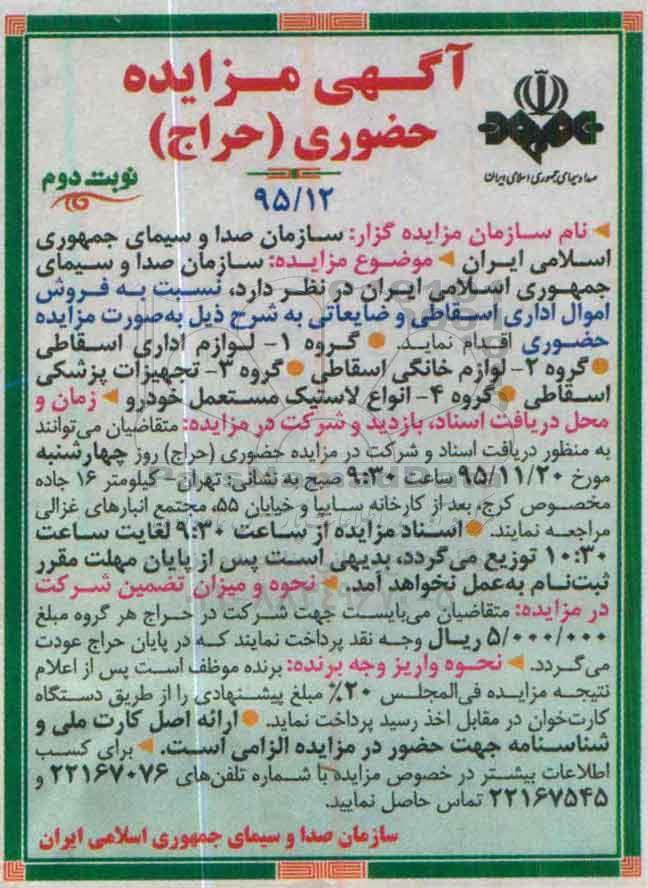 آگهی مزایده
حضوری (حراج)
صدا و سیمای جمهوری اسلامی ایران
نوبت دوم
۹۵/۱۲
نام سازمان مزایده گزار: سازمان صدا و سیمای جمهوری
اسلامی ایران موضوع مزایده: سازمان صدا و سیمای
جمهوری اسلامی ایران در نظر دارد، نسبت به فروش
اموال اداری اسقاطی و ضایعاتی به شرح ذیل به‌صورت مزایده
حضوری اقدام نماید. گروه ۱- لوازم اداری اسقاطی
گروه ۲- لوازم خانگی اسقاطی گروه ۳- تجهیزات پزشکی
اسقاطی گروه ۴- انواع لاستیک مستعمل خودرو زمان و
محل دریافت اسناد، بازدید و شرکت در مزایده: متقاضیان می‌توانند
به منظور دریافت اسناد و شرکت در مزایده حضوری (حراج) روز چهارشنبه
مورخ ۹۵/۱۱/۲۰ ساعت ۹:۳۰ صبح به نشانی: تهران- کیلومتر ۱۶ جاده
مخصوص کرج، بعد از کارخانه سایپا و خیابان ۵۵، مجتمع انبارهای غزالی
مراجعه نمایند. اسناد مزایده از ساعت ۹:۳۰ لغایت ساعت
۱۰:۳۰ توزیع می‌گردد، بدیهی است پس از پایان مهلت مقرر
ثبت‌نام به‌عمل نخواهد آمد. نحوه و میزان تضمین شرکت
در مزایده: متقاضیان می‌بایست جهت شرکت در حراج هر گروه مبلغ
۵/۰۰۰/۰۰۰ ریال وجه نقد پرداخت نمایند که در پایان حراج عودت
می‌گردد. نحوه واریز وجه برنده: برنده موظف است پس از اعلام
نتیجه مزایده فی‌المجلس ۲۰٪ مبلغ پیشنهادی را از طریق دستگاه
کارت‌خوان در مقابل اخذ رسید پرداخت نماید. ارائه اصل کارت ملی و
شناسنامه جهت حضور در مزایده الزامی است. برای کسب
اطلاعات بیشتر در خصوص مزایده با شماره تلفن‌های ۲۲۱۶۷۰۷۶ و
۲۲۱۶۷۵۴۵ تماس حاصل نمایید.
سازمان صدا و سیمای جمهوری اسلامی ایران